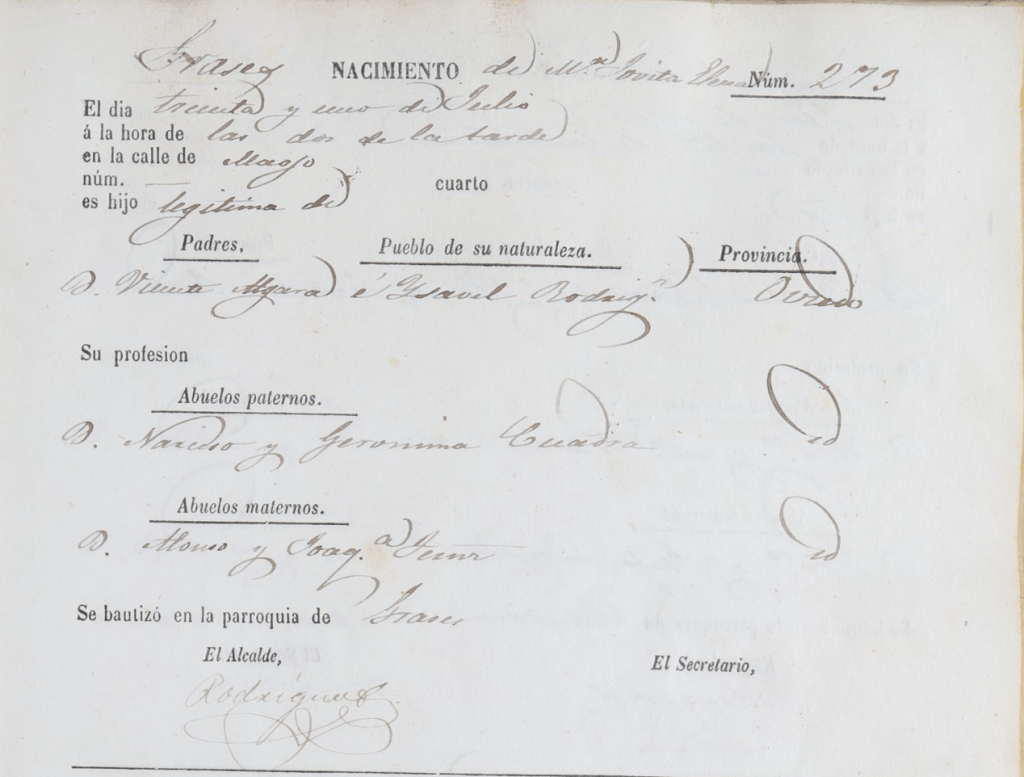 NACIMIENTO de M.ª Jovita Elena Núm. 273
El dia treinta y uno de Julio
á la hora de las dos de la tarde
en la calle de
núm. — cuarto
es hijo legitima de
Padres. Pueblo de su naturaleza. Provincia.
D. Vicente é Ysavel Rodrig.ᶻ Oviedo
Su profesion
Abuelos paternos.
D. Narciso y Geronima Cuadra id
Abuelos maternos.
D. Alonso y Joaq.ª id
Se bautizó en la parroquia de
El Alcalde, El Secretario,
Rodriguez